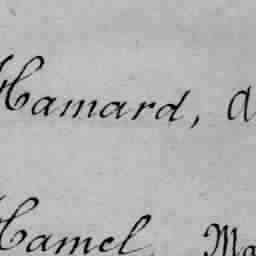 Hamard, A
Hamel, Ma